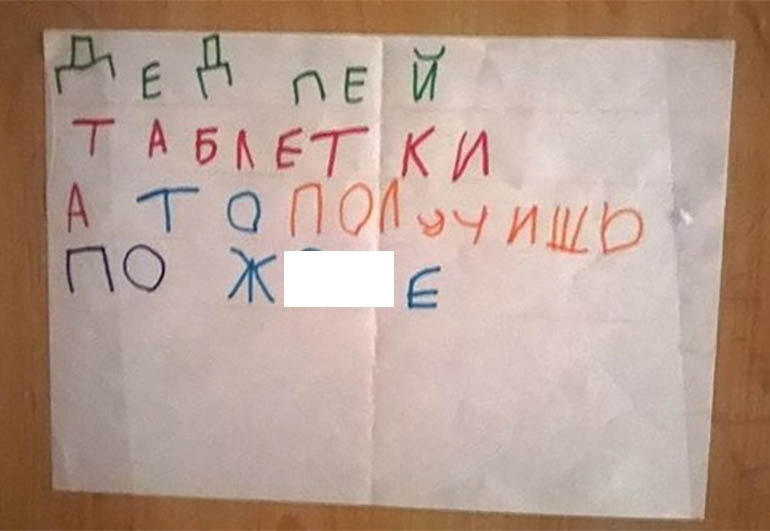 ДЕД ПЕЙ
ТАБЛЕТКИ
А ТО ПОЛУЧИШЬ
ПО